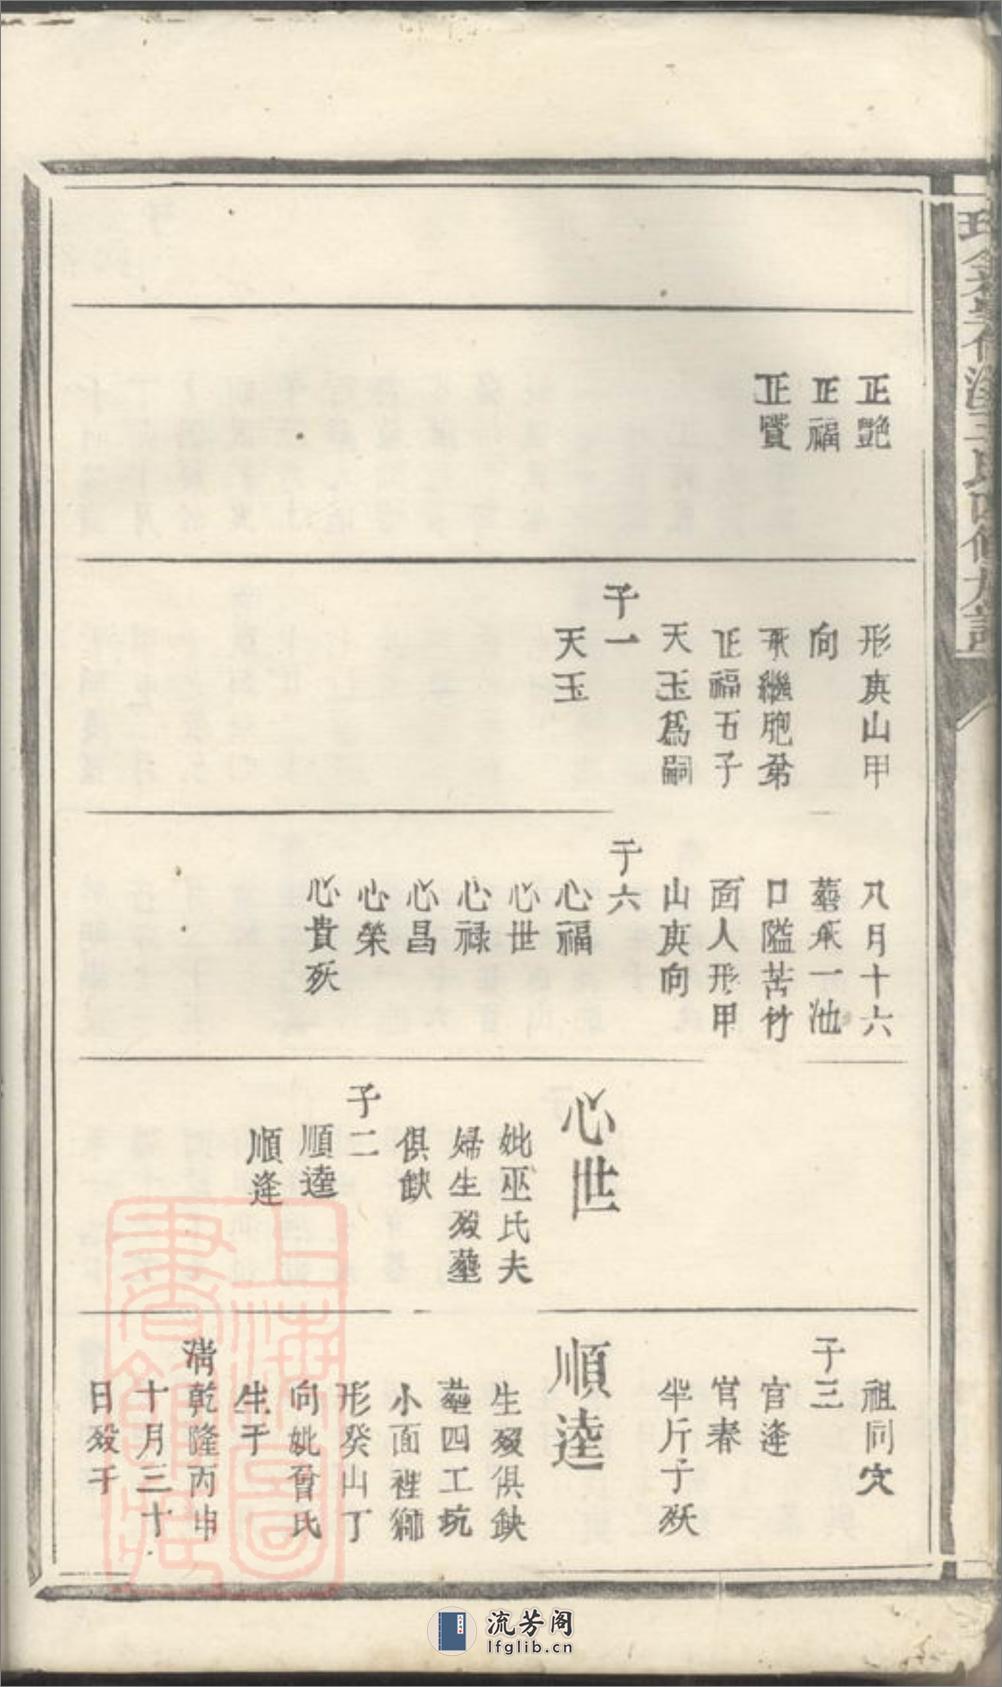 正艶
正福
正贒
形庚山甲
向
承繼胞弟
正福五子
天玉爲嗣
子一
天玉
八月十六
墓禾一池
口隘苦竹
面人形甲
山庚向
子六
心福
心世
心禄
心昌
心榮
心貴殀
心世
妣巫氏夫
婦生殁墓
俱缺
子二
順逵
順逢
祖同穴
子三
官逢
官春
半斤子殀
順逵
生殁俱缺
墓四工坑
小面裡獅
形癸山丁
向妣曾氏
生于
清乾隆丙申
十月三十
日殁于
上海圖書館藏
流芳阁
lfglib.cn